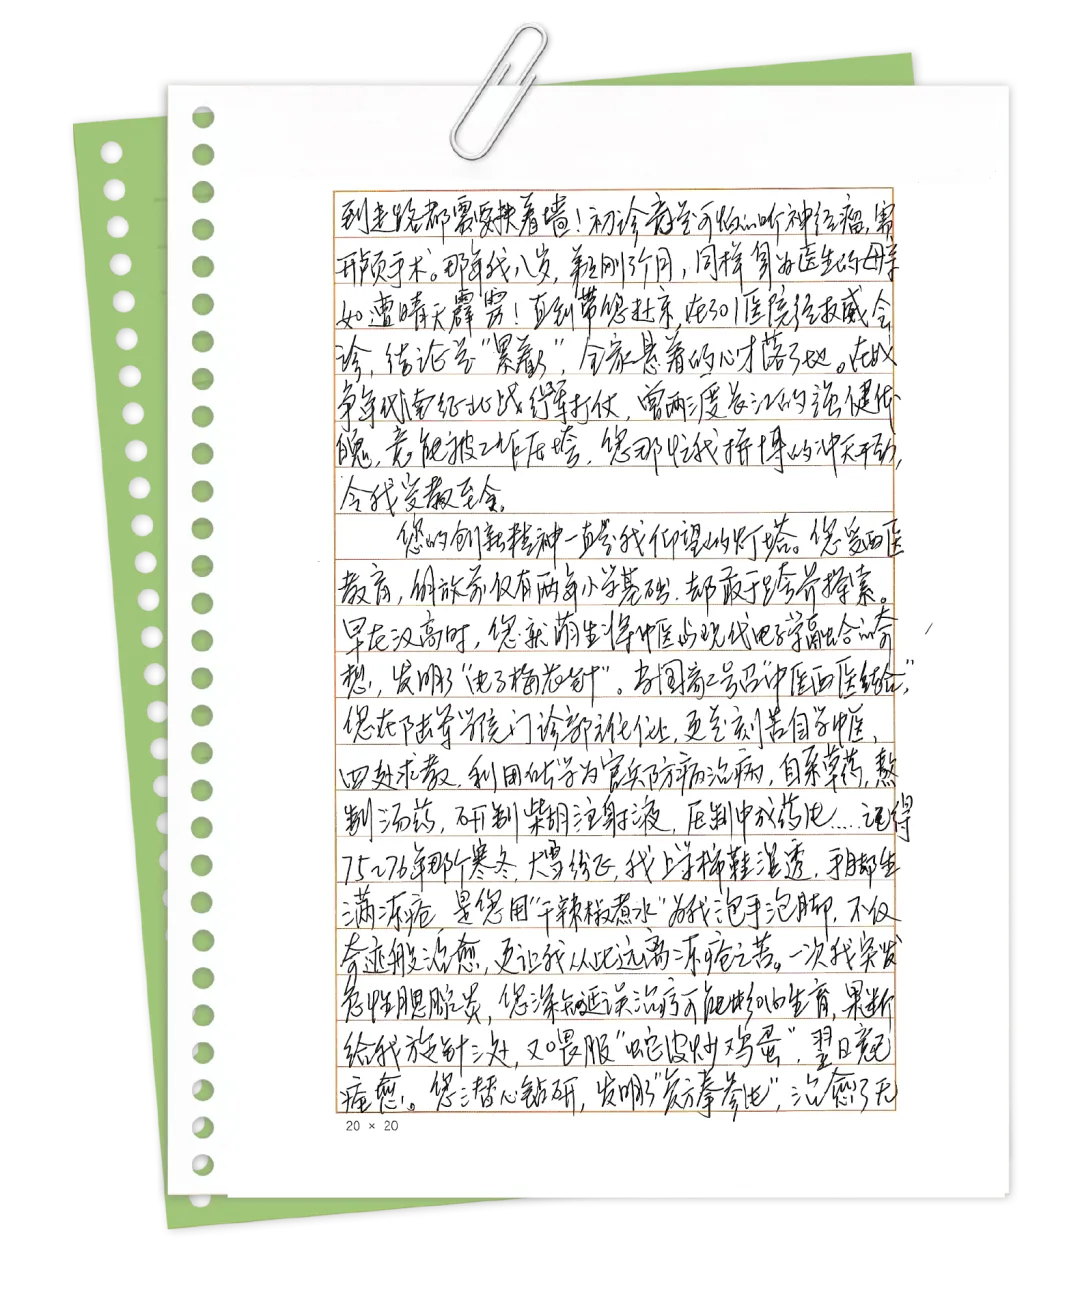 到走路都需要扶着墙！初诊竟是可怕的听神经瘤，需
开颅手术。那年我八岁，弟弟刚3个月，同样身为医生的母亲
如遭晴天霹雳！直到带您赴京，在301医院经权威会
诊，结论是“累着了”，全家悬着的心才落了地。在战
争年代南征北战行军打仗，曾两渡长江的强健体
魄，竟能被工作压垮，您那忘我拼搏的冲天干劲，
令我受教至今。
您的创新精神一直是我仰望的灯塔。您受西医
教育，解放前仅有两年小学基础，却敢于跨界探索。
早在汉高时，您就萌生将中医与现代电子学融合的奇
想，发明了“电子梅花针”。当国家号召“中医西医结合”，
您在陆军学院门诊部主任任上，更是刻苦自学中医，
四处求教，利用所学为官兵防病治病，自采草药，熬
制汤药，研制柴胡注射液，压制中成药片……记得
75~76年那个寒冬，大雪纷飞，我上学棉鞋湿透，手脚生
满冻疮，是您用“干辣椒煮水”为我泡手泡脚，不仅
奇迹般治愈，更让我从此远离冻疮之苦。一次我突发
急性腮腺炎，您深知延误治疗可能影响生育，果断
给我放针三处，又喂服“蛇皮炒鸡蛋”，翌日竟
痊愈。您潜心钻研，发明了“复方拳参片”，治愈了无
20 × 20